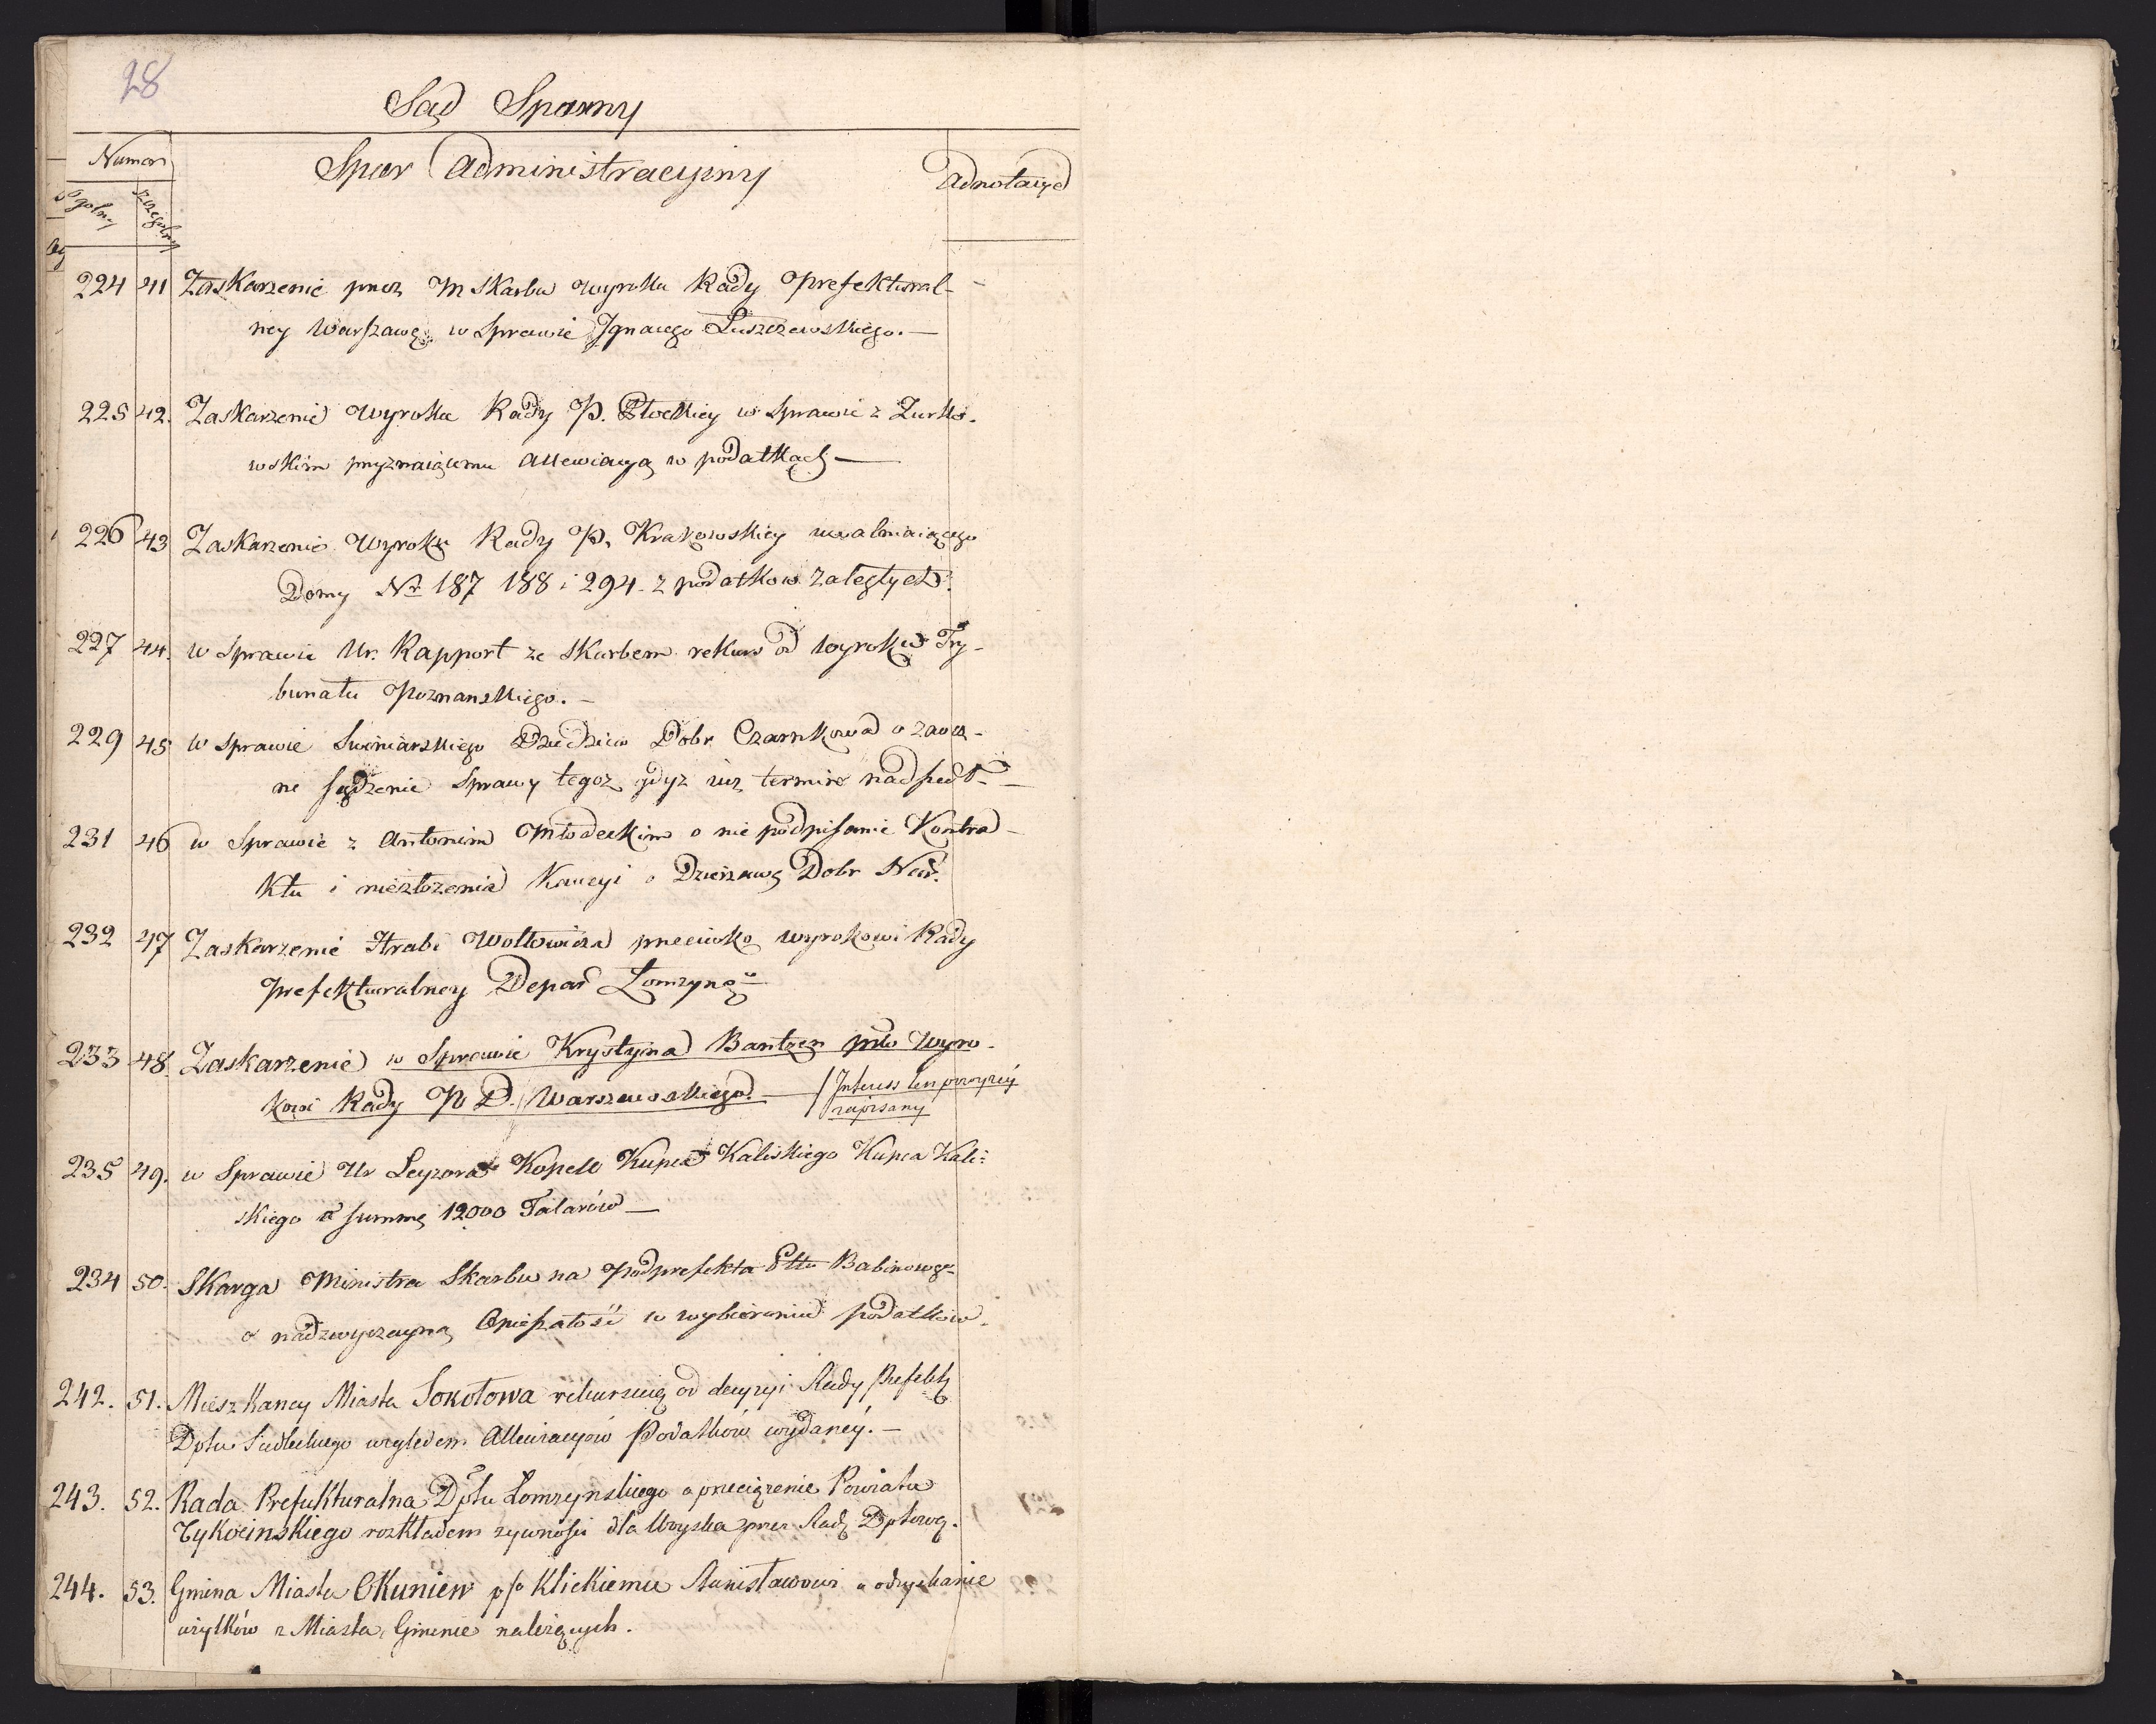 28
Sąd Sporny
Numer
Spor Administracyiny
Adnotacye
Ogolny
szczegolny
224 41 Zaskarzenie przez M Skarbu wyroku Rady Prefektural-
ney Warszaws: w Sprawie Ignacego Łuszczewskiego. —
225 42. Zaskarzenie wyroku Rady P. Płockiey w Sprawie z Zurko-
wskim przyznaiącemu allewiacyą w podatkach —
226 43 Zaskarzenie Wyroku Rady P. Krakowskiey uwalniaiącego
Domy Nr 187 188 i 294. z podatkow zaległych.
227 44. w Sprawie Ur. Rapport ze Skarbem rekurs od wyroku Try-
bunału Poznanskiego. —
229 45 w sprawie Swiniarskiego Dziedzica Dobr Czarnkowa o zaocz-
ne sądzenie Sprawy tegoz gdyz iuz termin nadszedł —
231 46 w Sprawie z Antonim Młodeckim o nie podpisanie Kontra-
ktu i niezłozenia Kaucyi o Dzierzawę Dobr Nar.
232 47 Zaskarzenie Hrabi Wołłowicza przeciwko wyrokowi Rady
Prefekturalney Depar Łomzyns —
233 48. Zaskarzenie w Sprawie Krystyna Bantzen prto wyro-
kowi Rady P D. Warszawskiego. — / Interess ten powyzey
zapisany
235 49. w Sprawie Ur Leyzora Kopell Kupca Kaliskiego Kupca Kali-
skiego o summę 12000 Talarów —
234 50. Skarga Ministra Skarbu na Podprefekta Pttu Babinowge-
o nadzwyczayną Opieszałość w wybieraniu podatkow.
242. 51. Mieszkancy Miasta Sokołowa rekursuią od decyzyi Rady Prefekty
Dptu Siedleckiego względem Allewiacyów Podatków wydaney. —
243. 52. Rada Prefekturalna Dptu Łomzynskiego o przeciązenie Powiatu
Tykocinskiego rozkładem zywności dla Woyska przez Radę Dptową.
244. 53. Gmina Miasta Okuniew p/o Klickiemu Stanisławowi o odzyskanie
uzytków z Miasta Gminie nalezących.